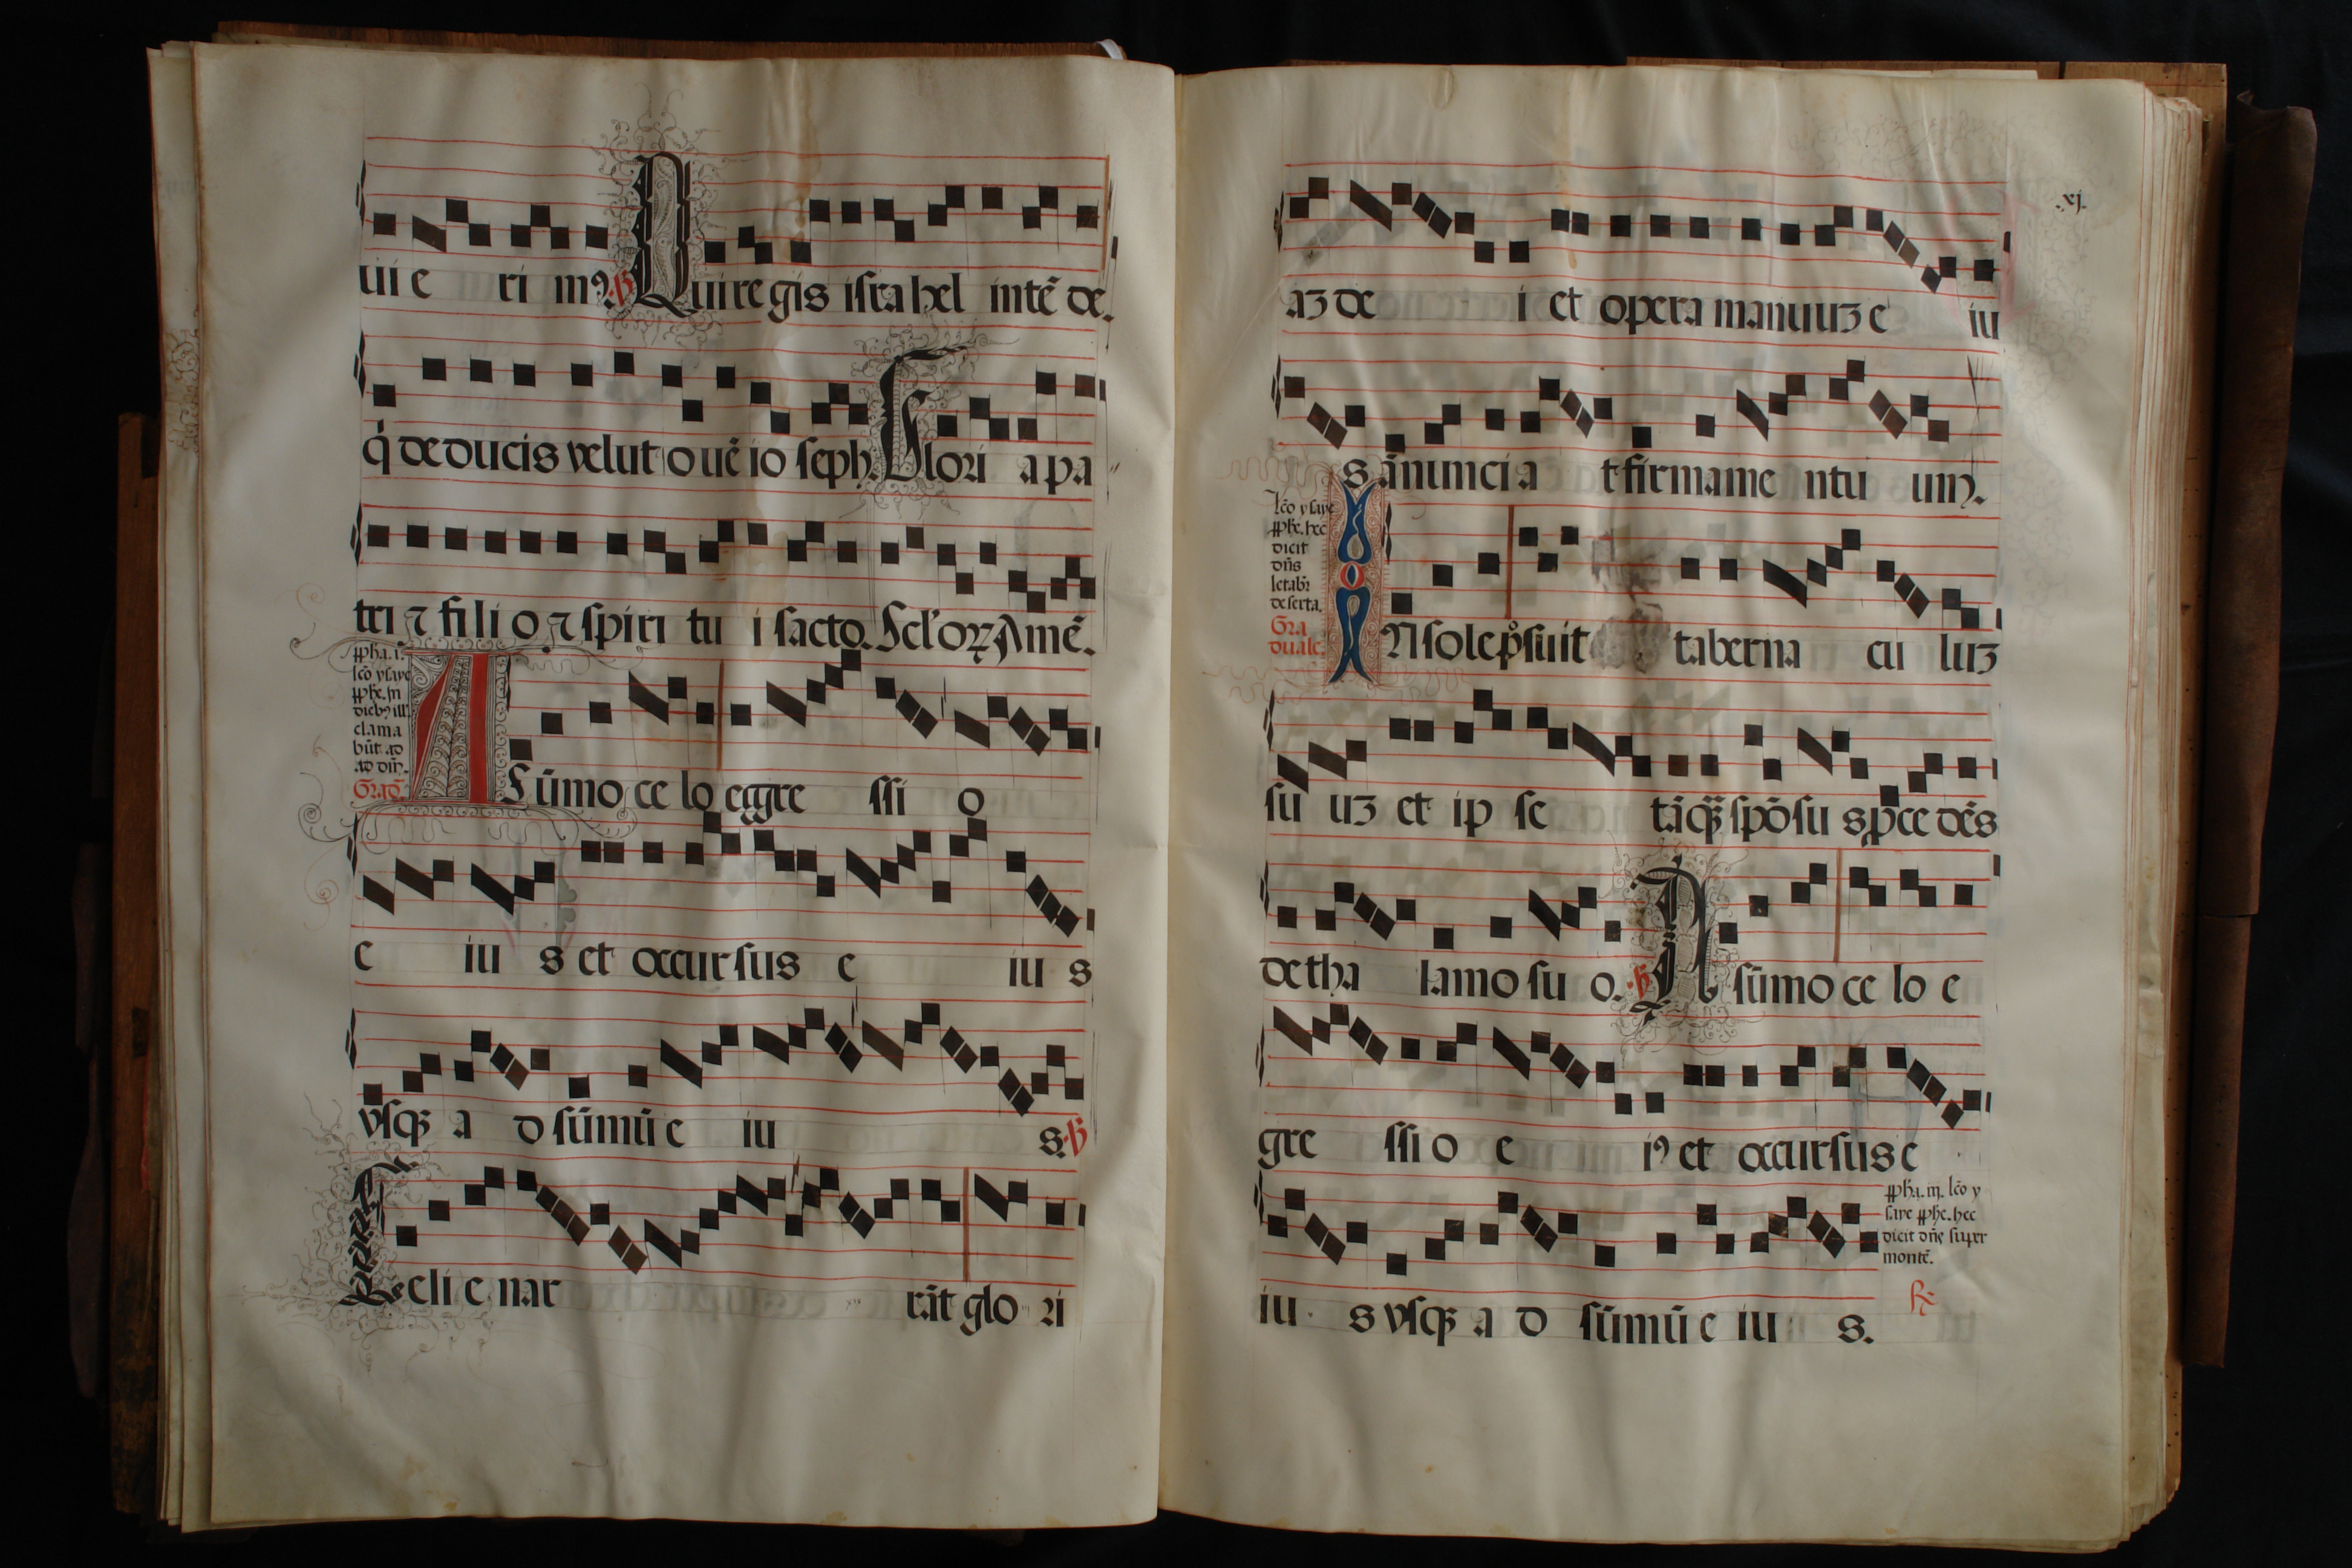 iii e ri mꝰ. ꝟ Qui regis israhel intē de.
q̇ de ducis velut ouē io seph. Glori a pa
tri ⁊ fili o ⁊ spiri tu i sācto. Scl'oꝝ Amē.
ꝓpha. i.
lcō ysaye
ꝓphe. in
diebꝰ ill'
clama
būt ad
ad dn̄.
Grad̄.
A Sūmo ce lo egre ssi o
e iu s et occur sus e iu s
vsqꝫ a d sūmū e iu s. ꝟ
Celi e nar rāt glo ri
.xj.
aꝫ de i et opera manuuꝫ e iu
s ānunci a t firmame ntu um.
lcō ysaye
ꝓphe. hec
dicit
dn̄s
letabr̄
deserta.
Gra
duale.
IN sole pͦsuit taberna cu luꝫ
su uꝫ et ip se tāqꝫ spōsu s ꝓce dēs
de tha lamo su o. ꝟ A sūmo ce lo e
gre ssi o e iꝰ et occursus e
ꝓpha. iii. lcō y
saye ꝓphe. hec
dicit dn̄s super
montē.
iu s vsqꝫ a d sūmū e iu s.